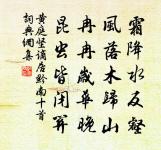 霜降水反壑
風落木歸山
冉冉歲華晚
昆虫皆閉關
黄庭堅謫居黔南十首
詞典網集